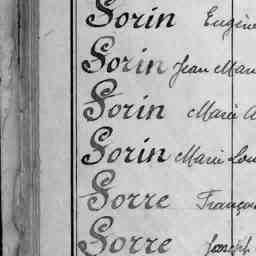 Sorin Eugène
Sorin Jean Mar
Sorin Marie A
Sorin Marie Lou
Sorre Franço
Sorre Joseph